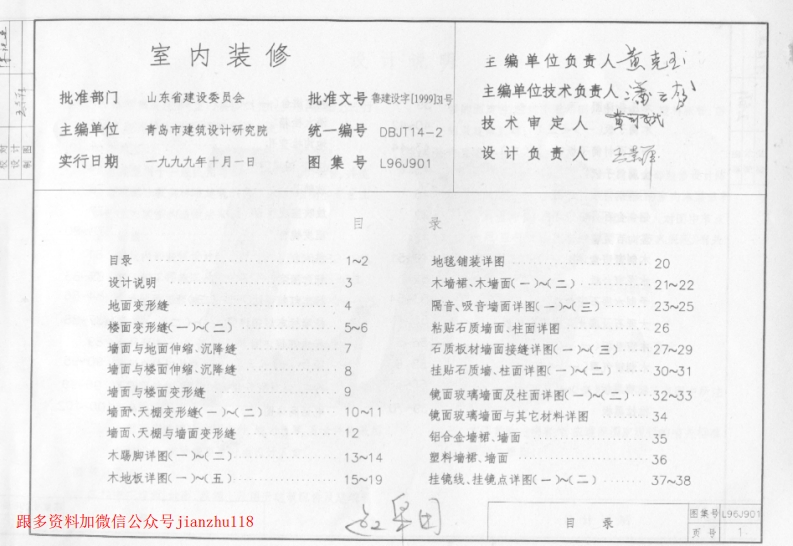 室内装修
批准部门 山东省建设委员会 批准文号 鲁建设字[1999]31号
主编单位 青岛市建筑设计研究院 统一编号 DBJT14-2
实行日期 一九九九年十月一日 图集号 L96J901
主编单位负责人
主编单位技术负责人
技术审定人
设计负责人
目 录
目录 1~2
设计说明 3
地面变形缝 4
楼面变形缝(一)~(二) 5~6
墙面与地面伸缩、沉降缝 7
墙面与楼面伸缩、沉降缝 8
墙面与楼面变形缝 9
墙面、天棚变形缝(一)~(二) 10~11
墙面、天棚与墙面变形缝 12
木踢脚详图(一)~(二) 13~14
木地板详图(一)~(五) 15~19
地毯铺装详图 20
木墙裙、木墙面(一)~(二) 21~22
隔音、吸音墙面详图(一)~(三) 23~25
粘贴石质墙面、柱面详图 26
石质板材墙面接缝详图(一)~(三) 27~29
挂贴石质墙、柱面详图(一)~(二) 30~31
镜面玻璃墙面及柱面详图(一)~(二) 32~33
镜面玻璃墙面与其它材料详图 34
铝合金墙裙、墙面 35
塑料墙裙、墙面 36
挂镜线、挂镜点详图(一)~(二) 37~38
跟多资料加微信公众号jianzhu118
目 录
图集号 L96J901
页号 1